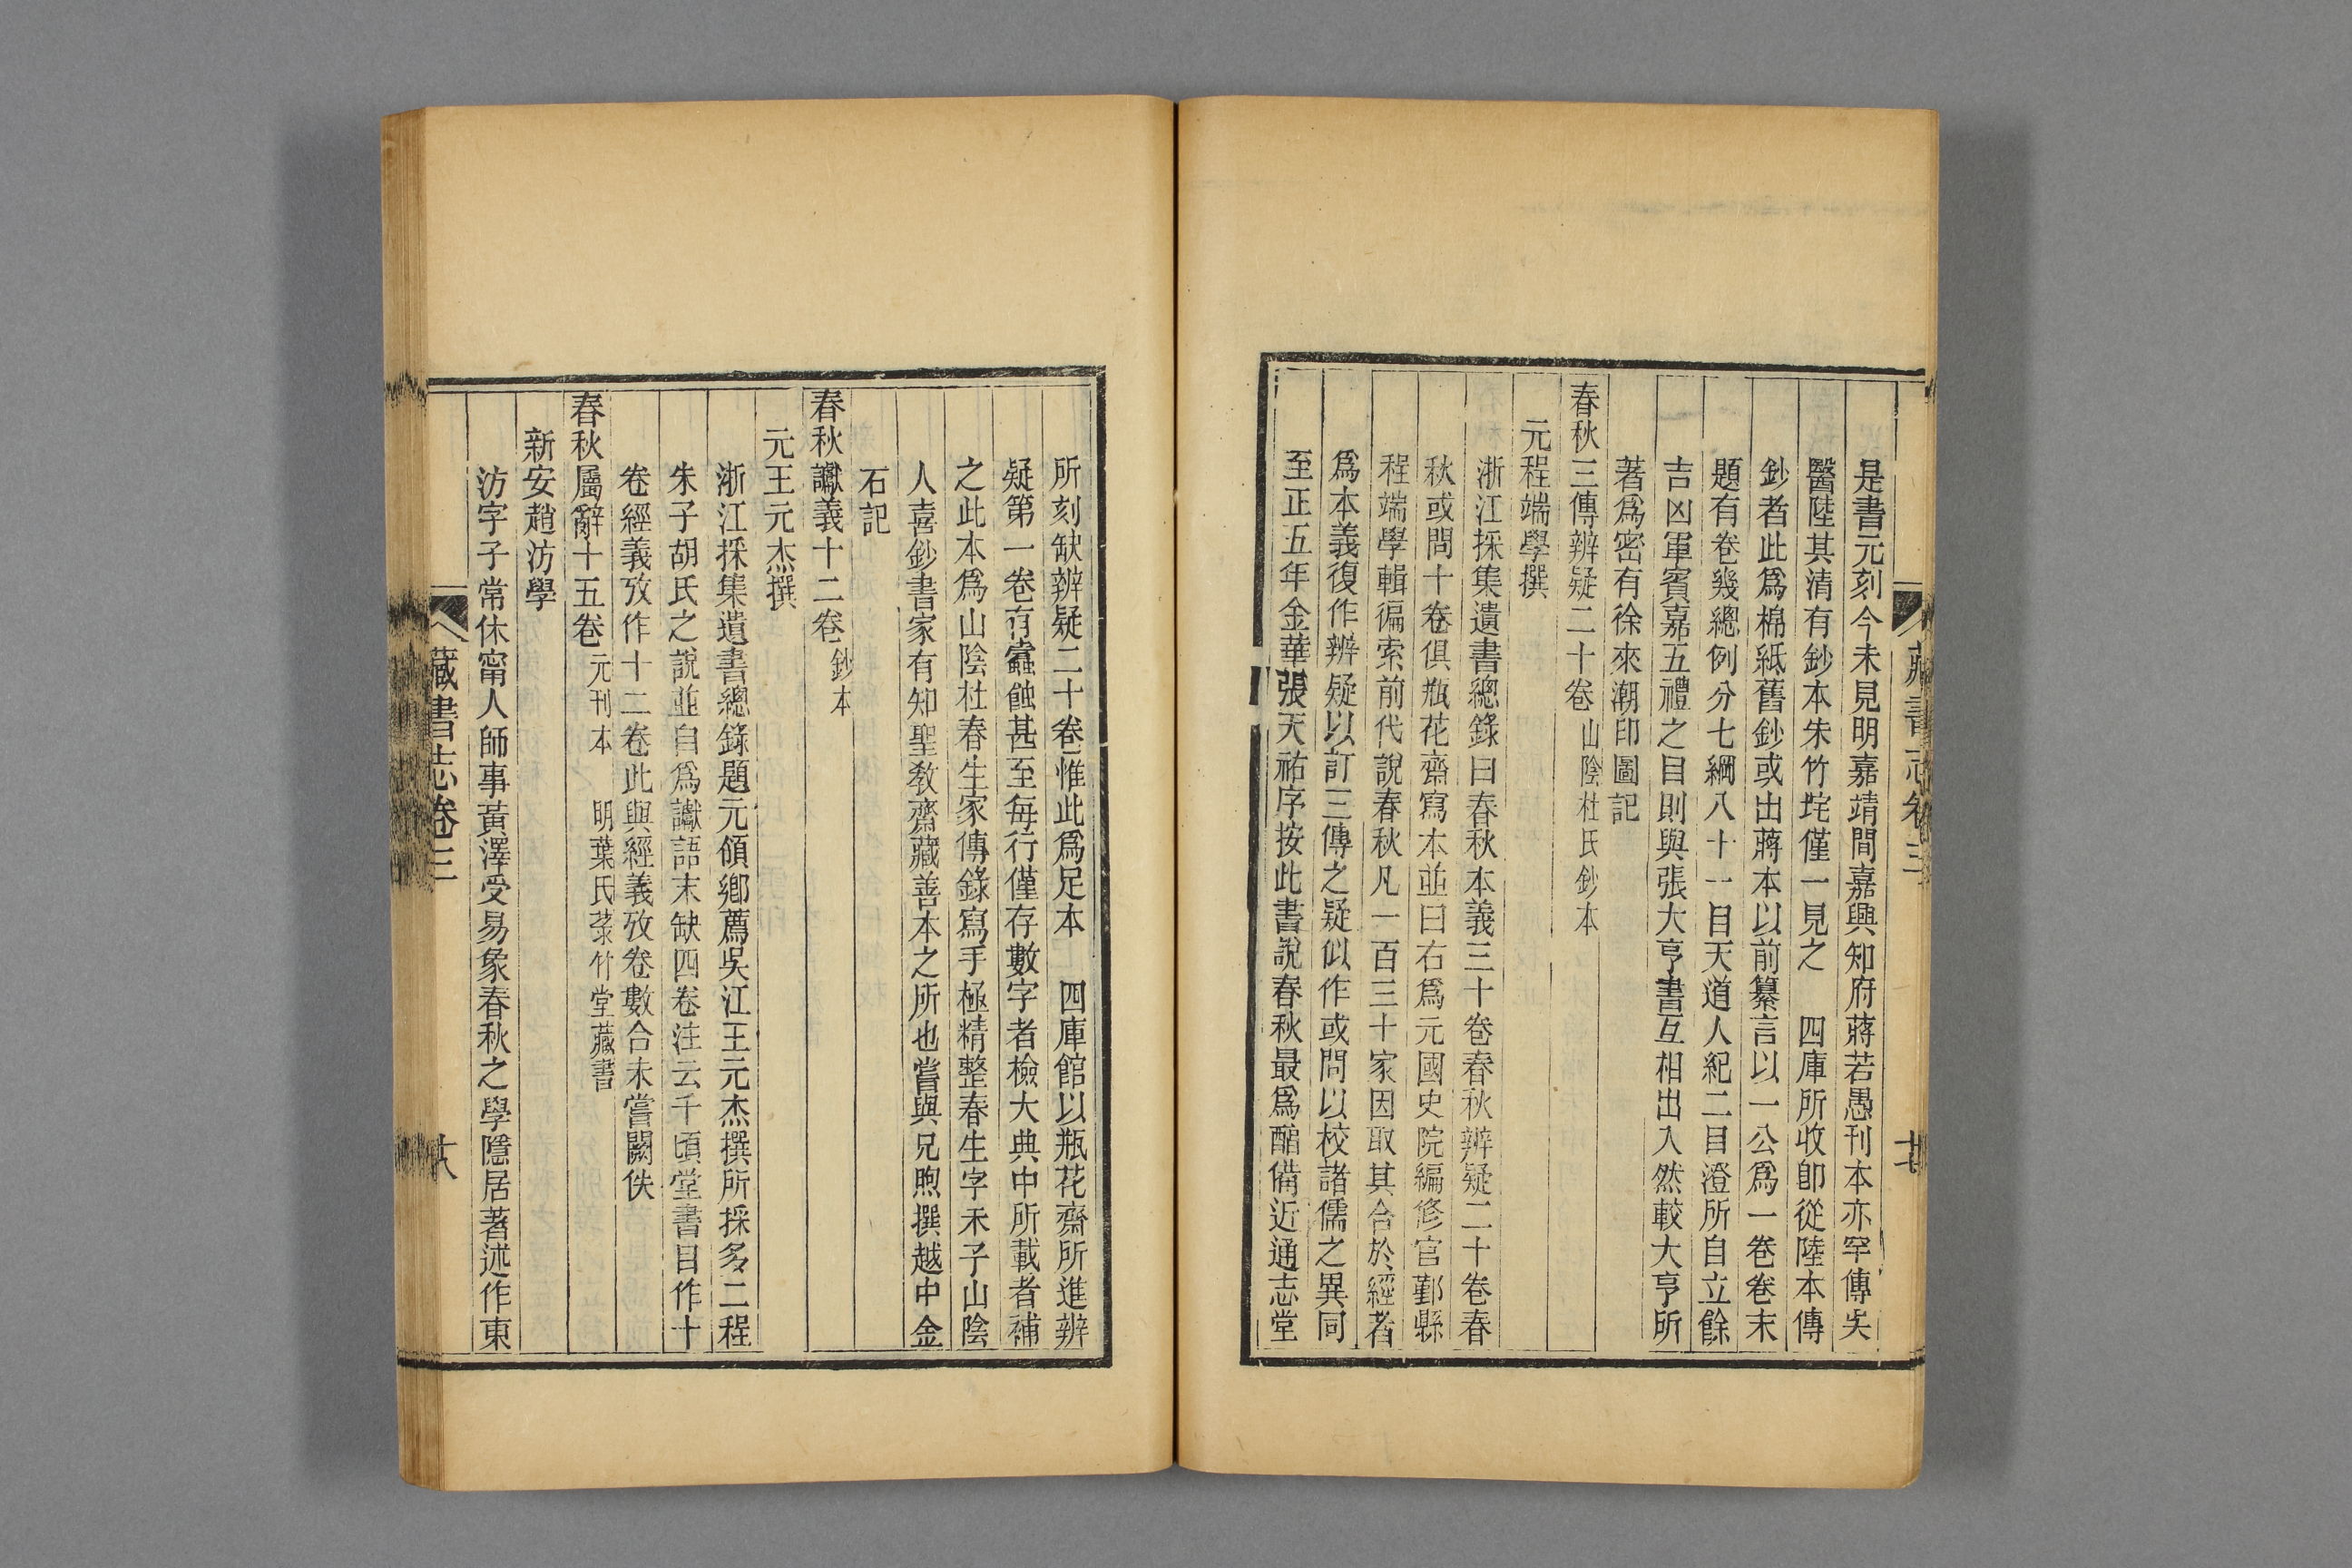 藏書志卷三
十七
是書元刻今未見明嘉靖間嘉興知府蔣若愚刊本亦罕傳矣
醫陸其清有鈔本朱竹垞僅一見之　四庫所收卽從陸本傳
鈔者此爲棉紙舊鈔或出蔣本以前纂言以一公爲一卷卷末
題有卷幾總例分七綱八十一目天道人紀二目澄所自立餘
吉凶軍賓嘉五禮之目則與張大亨書互相出入然較大亨所
著爲密有徐來潮印圖記
春秋三傳辨疑二十卷　山陰杜氏鈔本
元程端學撰
浙江採集遺書總錄曰春秋本義三十卷春秋辨疑二十卷春
秋或問十卷俱瓶花齋寫本並曰右爲元國史院編修官鄞縣
程端學輯徧索前代說春秋凡一百三十家因取其合於經者
爲本義復作辨疑以訂三傳之疑似作或問以校諸儒之異同
至正五年金華張天祐序按此書說春秋最爲酩備近通志堂
所刻缺辨疑二十卷惟此爲足本　四庫館以瓶花齋所進辨
疑第一卷有蠧蝕甚至每行僅存數字者檢大典中所載者補
之此本爲山陰杜春生家傳錄寫手極精整春生字禾子山陰
人喜鈔書家有知聖敎齋藏善本之所也嘗與兄煦撰越中金
石記
春秋讞義十二卷　鈔本
元王元杰撰
浙江採集遺書總錄題元領鄉薦吳江王元杰撰所採多二程
朱子胡氏之說並自爲讞語末缺四卷注云千頃堂書目作十
卷經義攷作十二卷此與經義攷卷數合未嘗闕佚
春秋屬辭十五卷　元刊本　明葉氏菉竹堂藏書
新安趙汸學
汸字子常休甯人師事黃澤受易象春秋之學隱居著述作東
藏書志卷三
十八